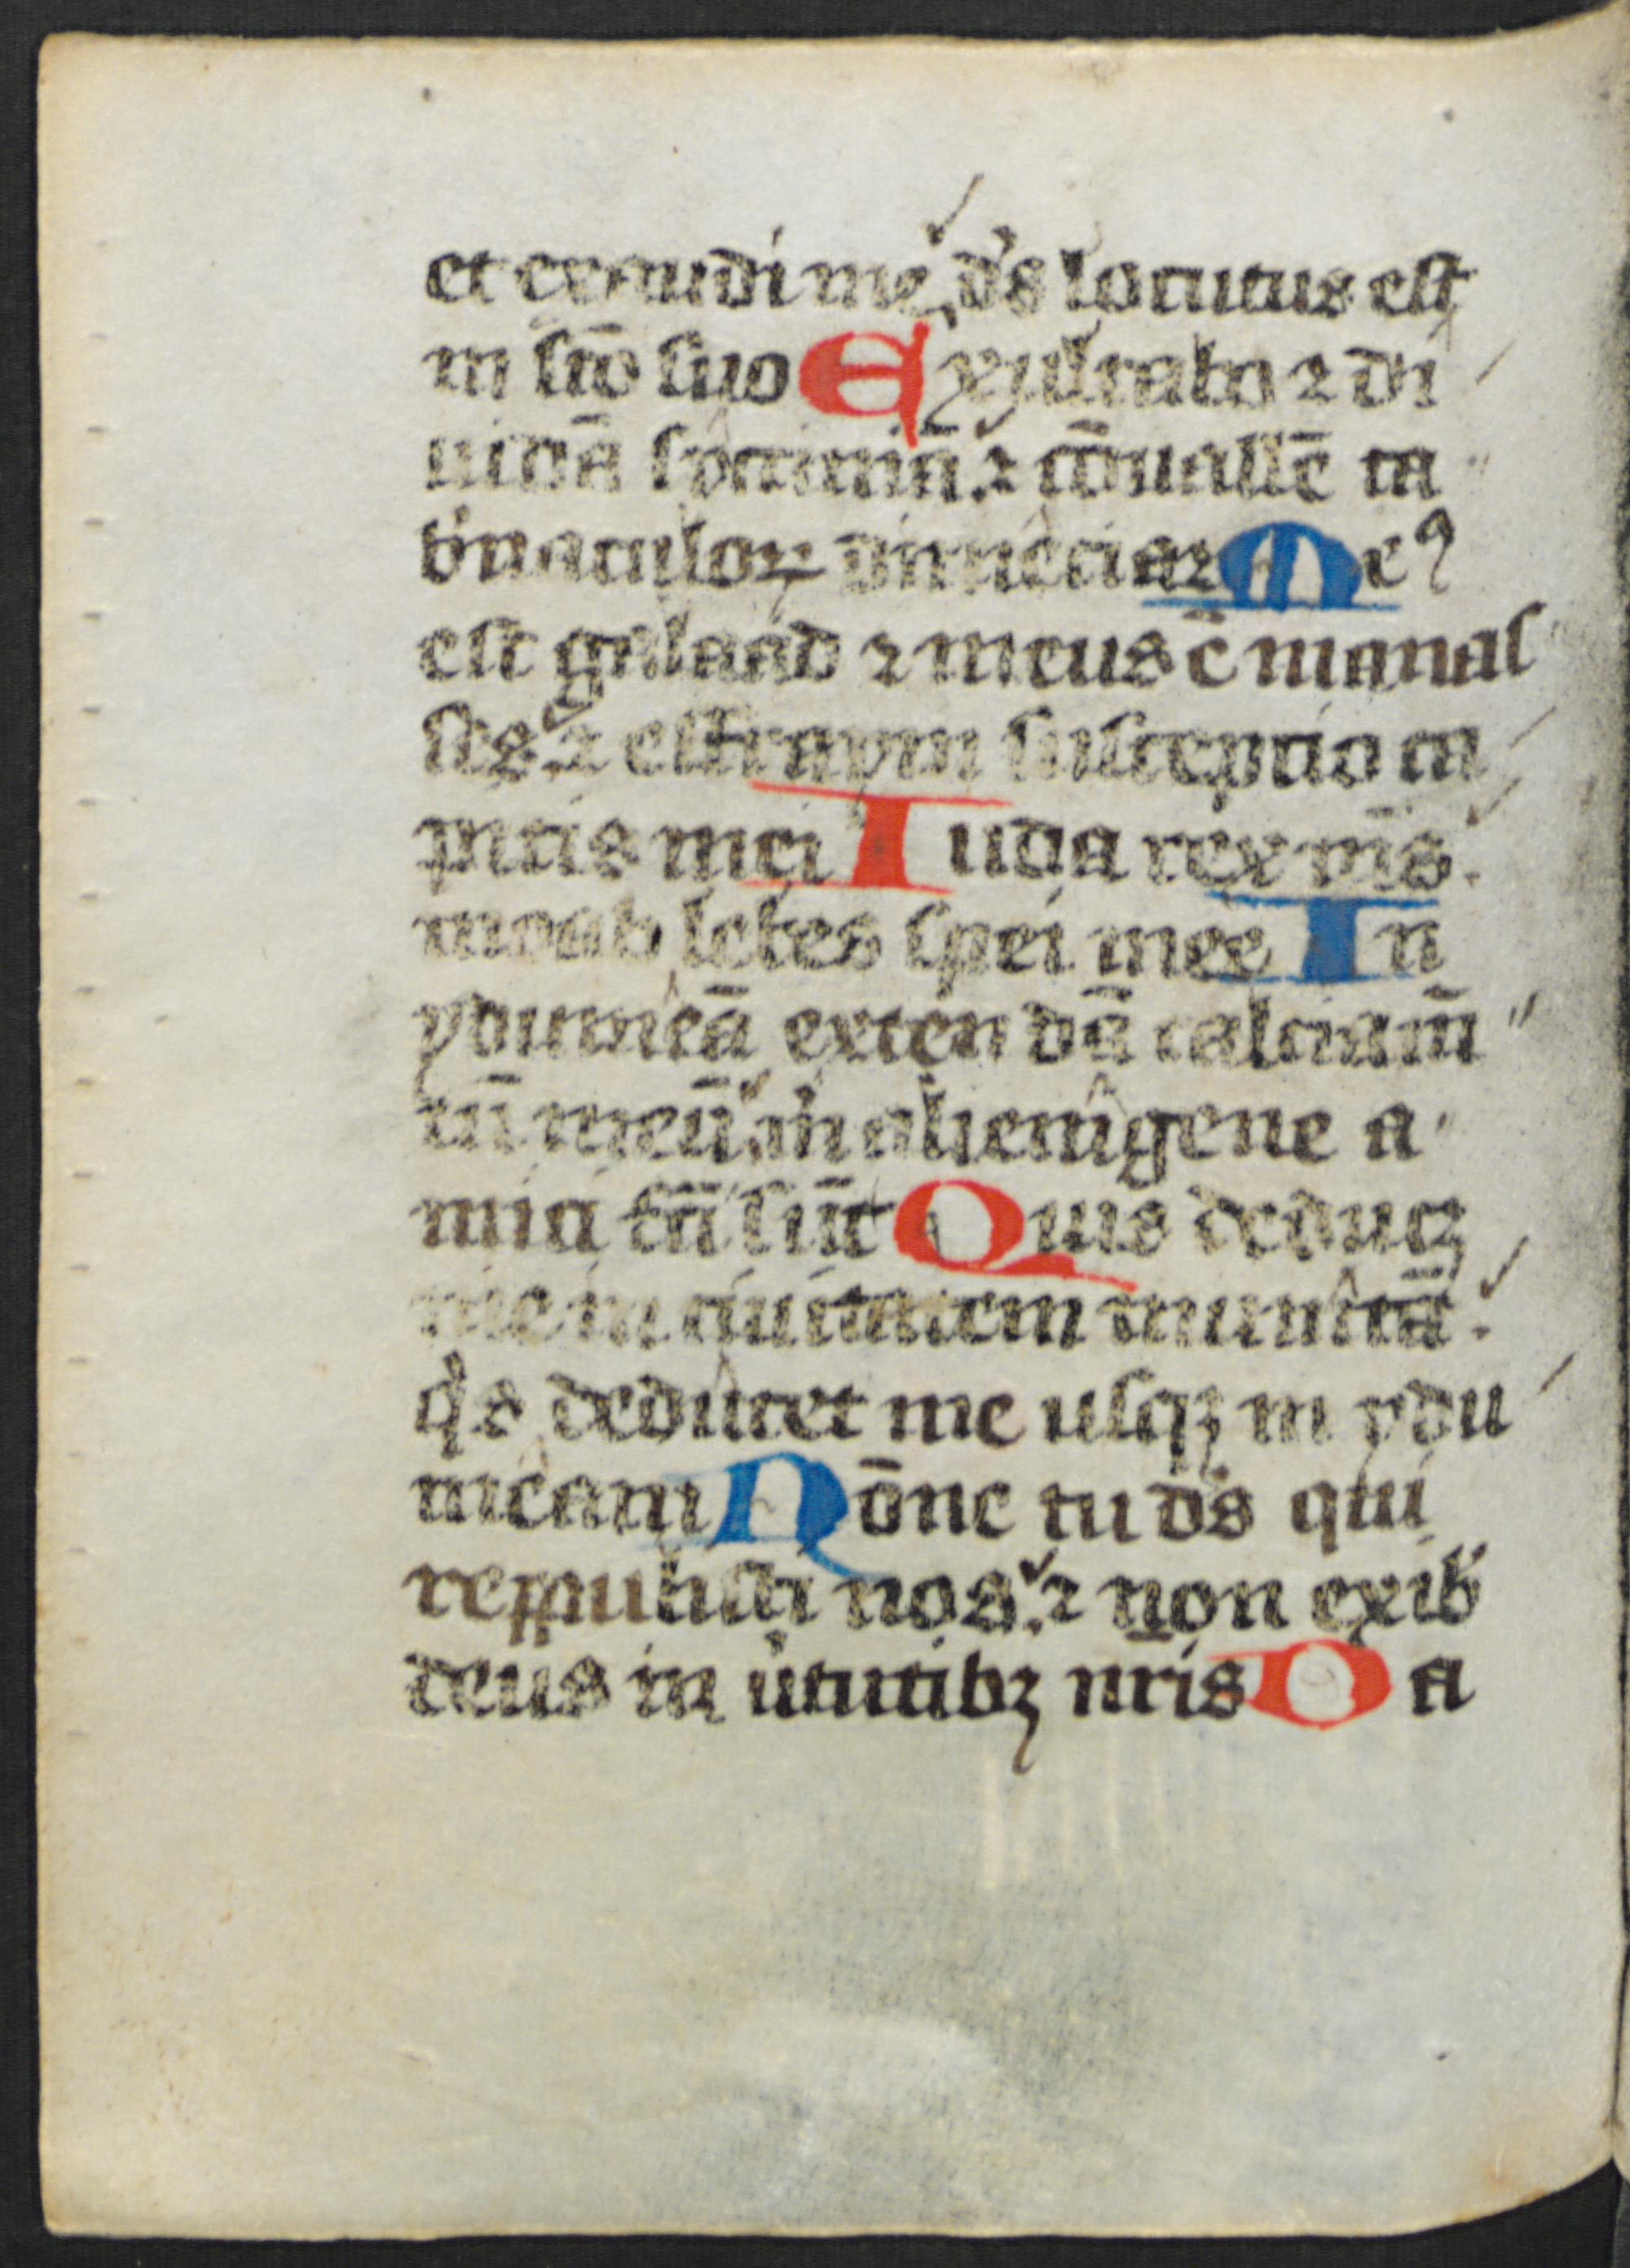 et exaudi me, ds̄ locutus est
in sc̄o suo Exultabo ⁊ di
uidā syccimā. ⁊ cōuallē ta
b̓naculoꝝ dimeciar Meꝰ
est galaad ⁊ meus ē manas
ses. ⁊ effraym susceptio ca
pitis mei Iuda rex mȩ̄s.
moab lebes spei mee In
ydumeā extendā calciam̄
tū meū. m̓ alienigene a
mici fc̄i sūt Quis deducȝ
me in ciuitatem munitā.
qⁱs deducet me usqȝ in ydu
meam Nōne tu ds̄ qui
repulisti nos. ⁊ non exib̓
deus in ûtutibȝ nr̄is Da